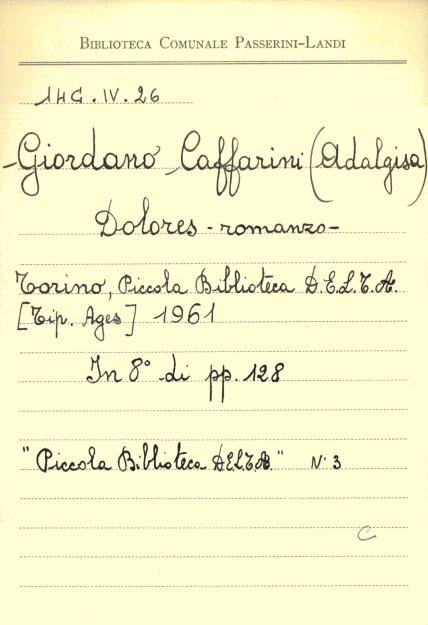 BIBLIOTECA COMUNALE PASSERINI-LANDI
14G.IV.26
-Giordano Caffarini (Adalgisa)
Dolores - romanzo-
Torino, Piccola Biblioteca D.E.L.T.A.
[Tip. Ages] 1961
In 8° di pp. 128
"Piccola Biblioteca DELTA" N. 3
C